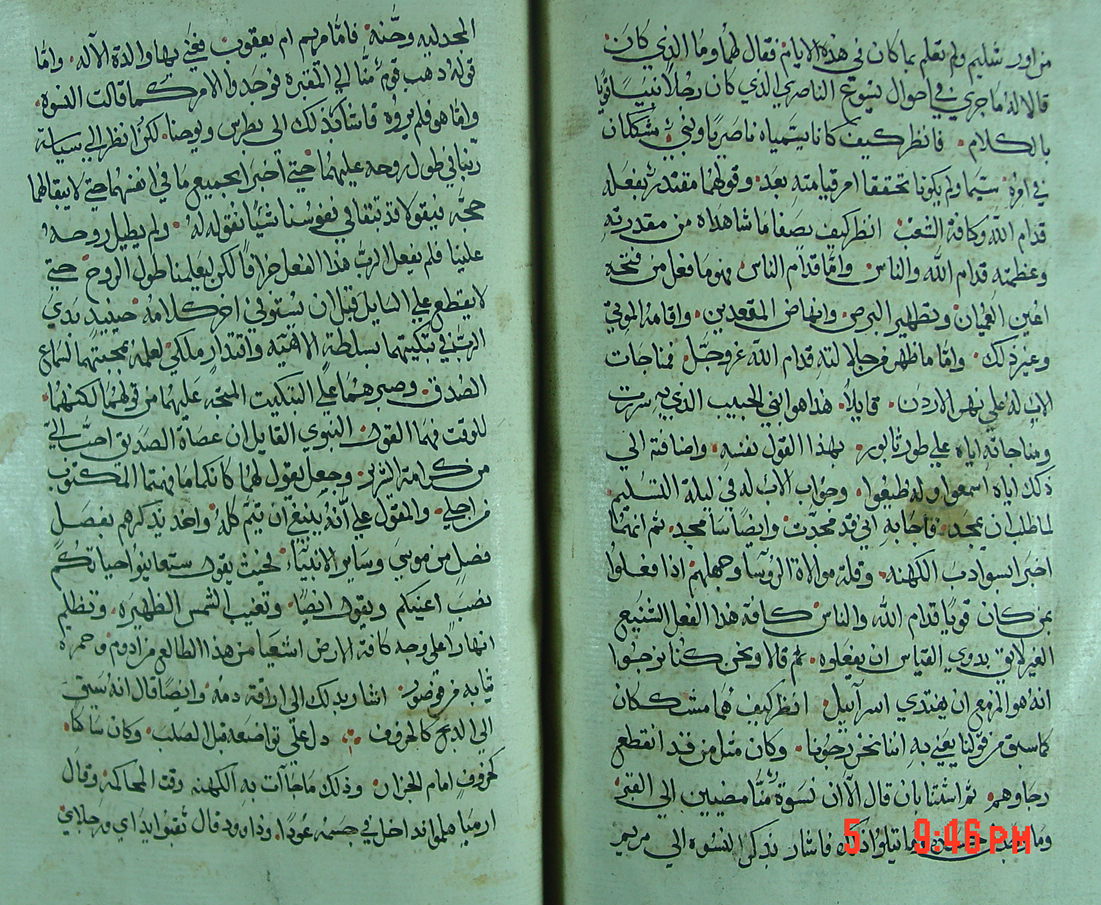 من اورشليم ولم تعلم بما كان في هذه الايام فقال لهما وما الذي كان
قالا له ما جري في احوال يسوع الناصري الذي كان رجلا نبيا قويا
بالكلام. فانظر كيف كانا يسمياه ناصريا ونبي يشكان
في امره سيما ولم يكونا تحققا امر قيامته بعد. وقولهما مقتدر بفعله
قدام الله وكافة الشعب انظر كيف يصفا ما شاهداه من مقدرته
وعظمته قدام الله والناس. واما قدام الناس فهو ما فعل من فتحه
اعين العميان وتطهير البرص وانهاض المقعدين. واقامة الموتي
وغير ذلك. واما ما ظهر من جلالته قدام الله عز وجل فمناجات
الاب له علي نهر الاردن. قايلا. هذا هو ابني الحبيب الذي به سررت
ومناجاته اياه علي طور تابور. بهذا القول نفسه. واضافة الي
ذلك اياه اسمعوا وله طيعوا. وجواب الاب له في ليلة التسليم
لما طلب ان يمجد. فاجابه اني قد مجدت وايضا سامجد. ثم انهما
اخبرا بسو ادب الكهنه. وقلة موالاة الروسا وجهلهم اذا فعلوا
بمن كان قويا قدام الله والناس كافة هذا الفعل الشنيع
الغير لايق بذوي القياس ان يفعلوه. ثم قالا ونحن كنا نرجوا
انه هو المزمع ان يفتدي اسرآييل. انظر كيف هما مشككان
كما سبق من قولنا يعني به اننا نحن رجونا. وكان مثل من قد انقطع
رجاوهم. ثم استثنا بان قال الآن نسوة منا مضيين الي القبر
وما فاشار بذكر النسوه الي مريم
المجدليه وحنه. فاما مريم ام يعقوب فهي بها والدة الآله. واما
قوله ذهب قوم منا الي المقبره فوجدوا الامر كما قالت النسوه.
واما هو فلم يروه فاستاكد ذلك الي بطرس ويوحنا. لكن انظر الي سياسة
ربنا في طول روحه عليهما حتي اخبرا بجميع ما في انفسهما حتي لا يبقا لهما
حجه نقوله له. ولم يطيل روحه
علينا فلم يفعل الرب هذا الفعل جزافا لكن ليعلمنا طول الروح حتي
لا يقطع علي السايل قبل ان يستوفي اخر كلامه حينيذ بدي
الرب في تبكيتهما بسلطة الاهيه واقتدار ملكي لعلمه بمحبتهما لسماع
الصدق. وصبرهما علي التبكيت المتجه عليهما من قولهما
للوقت بهما القول النبوي القايل ان عصاة الصديق احب الي
من كرامة الشرير. وجعل يقول لهما كانكما ما فهمتما المكتوب
من اجلي. والمقول علي انه ينبغي ان يتم كله. واخد يذكرهم بفصل
فصل من موسي وساير الانبياء بحيث يقول ستعاينوا حياتكم
نصب اعينكم ويقول ايضا. وتغيب الشمس الظهيره. وتظلم
انهارا علي وجه كافة الارض اشعيا من هذا الطالع من ادوم وحمرة
ثيابه من فوصور. اشار بذلك الي اراقة دمه. وايضا قال انه سيق
الي الدبح كالخروف. دل علي تواضعه قبل الصلب. وكان ساكتا.
كخروف امام الجزار. وذلك ما جاآت به الكهنه وقت المحاكمه. وقال
ارميا هلموا نداخل في جسمه عودا. وداوود قال ثقبوا ايداي ورجلاي
5 9:46 PM